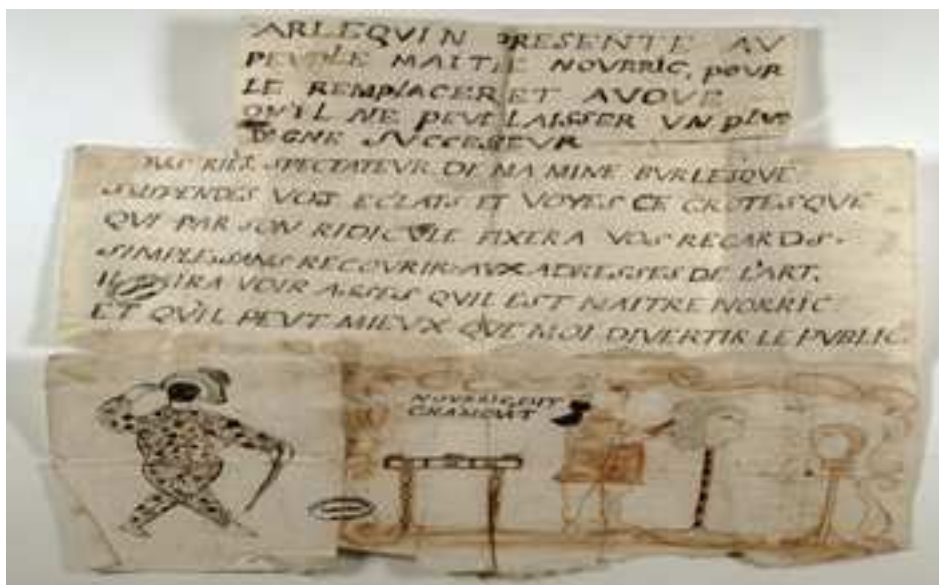 ARLEQVIN PRESENTE AV
PEUPLE MAITRE NOVRRIC, POUR
LE REMPLACER ET AVOVE
QV'IL NE PEVT LAISSER VN PLVS
DIGNE SVCCESSEVR
RIES SPECTATEVR DE MA MINE BVRLESQVE
SVSPENDES VOS ECLATS ET VOYES CE GROTESQVE
QVI PAR SON RIDICVLE FIXERA VOS REGARDS.
SIMPLE SANS RECOVRIR AVX ADRESSES DE L'ART.
IL FAIRA VOIR ASSES QVIL EST MAITRE NORRIC
ET QV'IL PEVT MIEVX QVE MOI DIVERTIR LE PVBLIC
NOVRRIC DIT